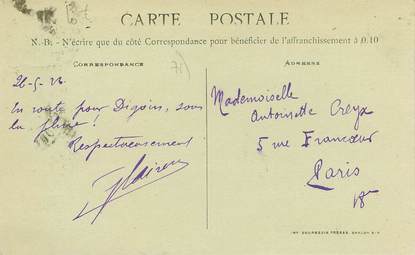 CARTE POSTALE
N.-B. - N'écrire que du côté Correspondance pour bénéficier de l'affranchissement à 0.10
CORRESPONDANCE
ADRESSE
26-5-26
En route pour Digoin, sous
la pluie !
Respectueusement
Mademoiselle
Antoinette
5 rue Francœur
Paris
18e
IMP. BOURGEOIS FRÈRES, CHALON S-S